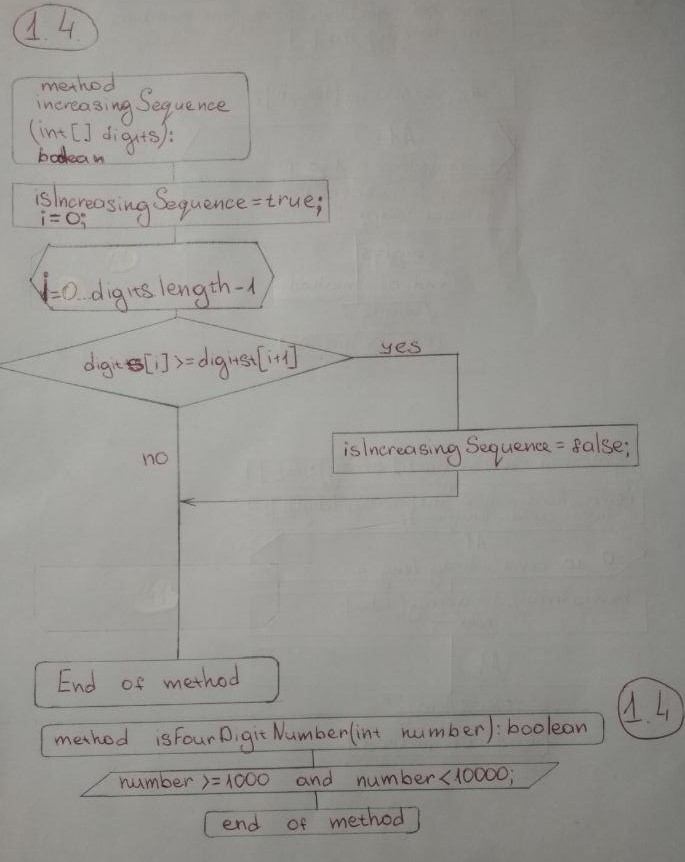 1.4.
method
increasingSequence
(int[] digits):
boolean
isIncreasingSequence=true;
i=0;
i=0...digits.length-1
digits[i]>=digitst[i+1]
yes
no
isIncreasingSequence=false;
End of method
1.4
method isFourDigitNumber(int number):boolean
number>=1000 and number<10000;
end of method